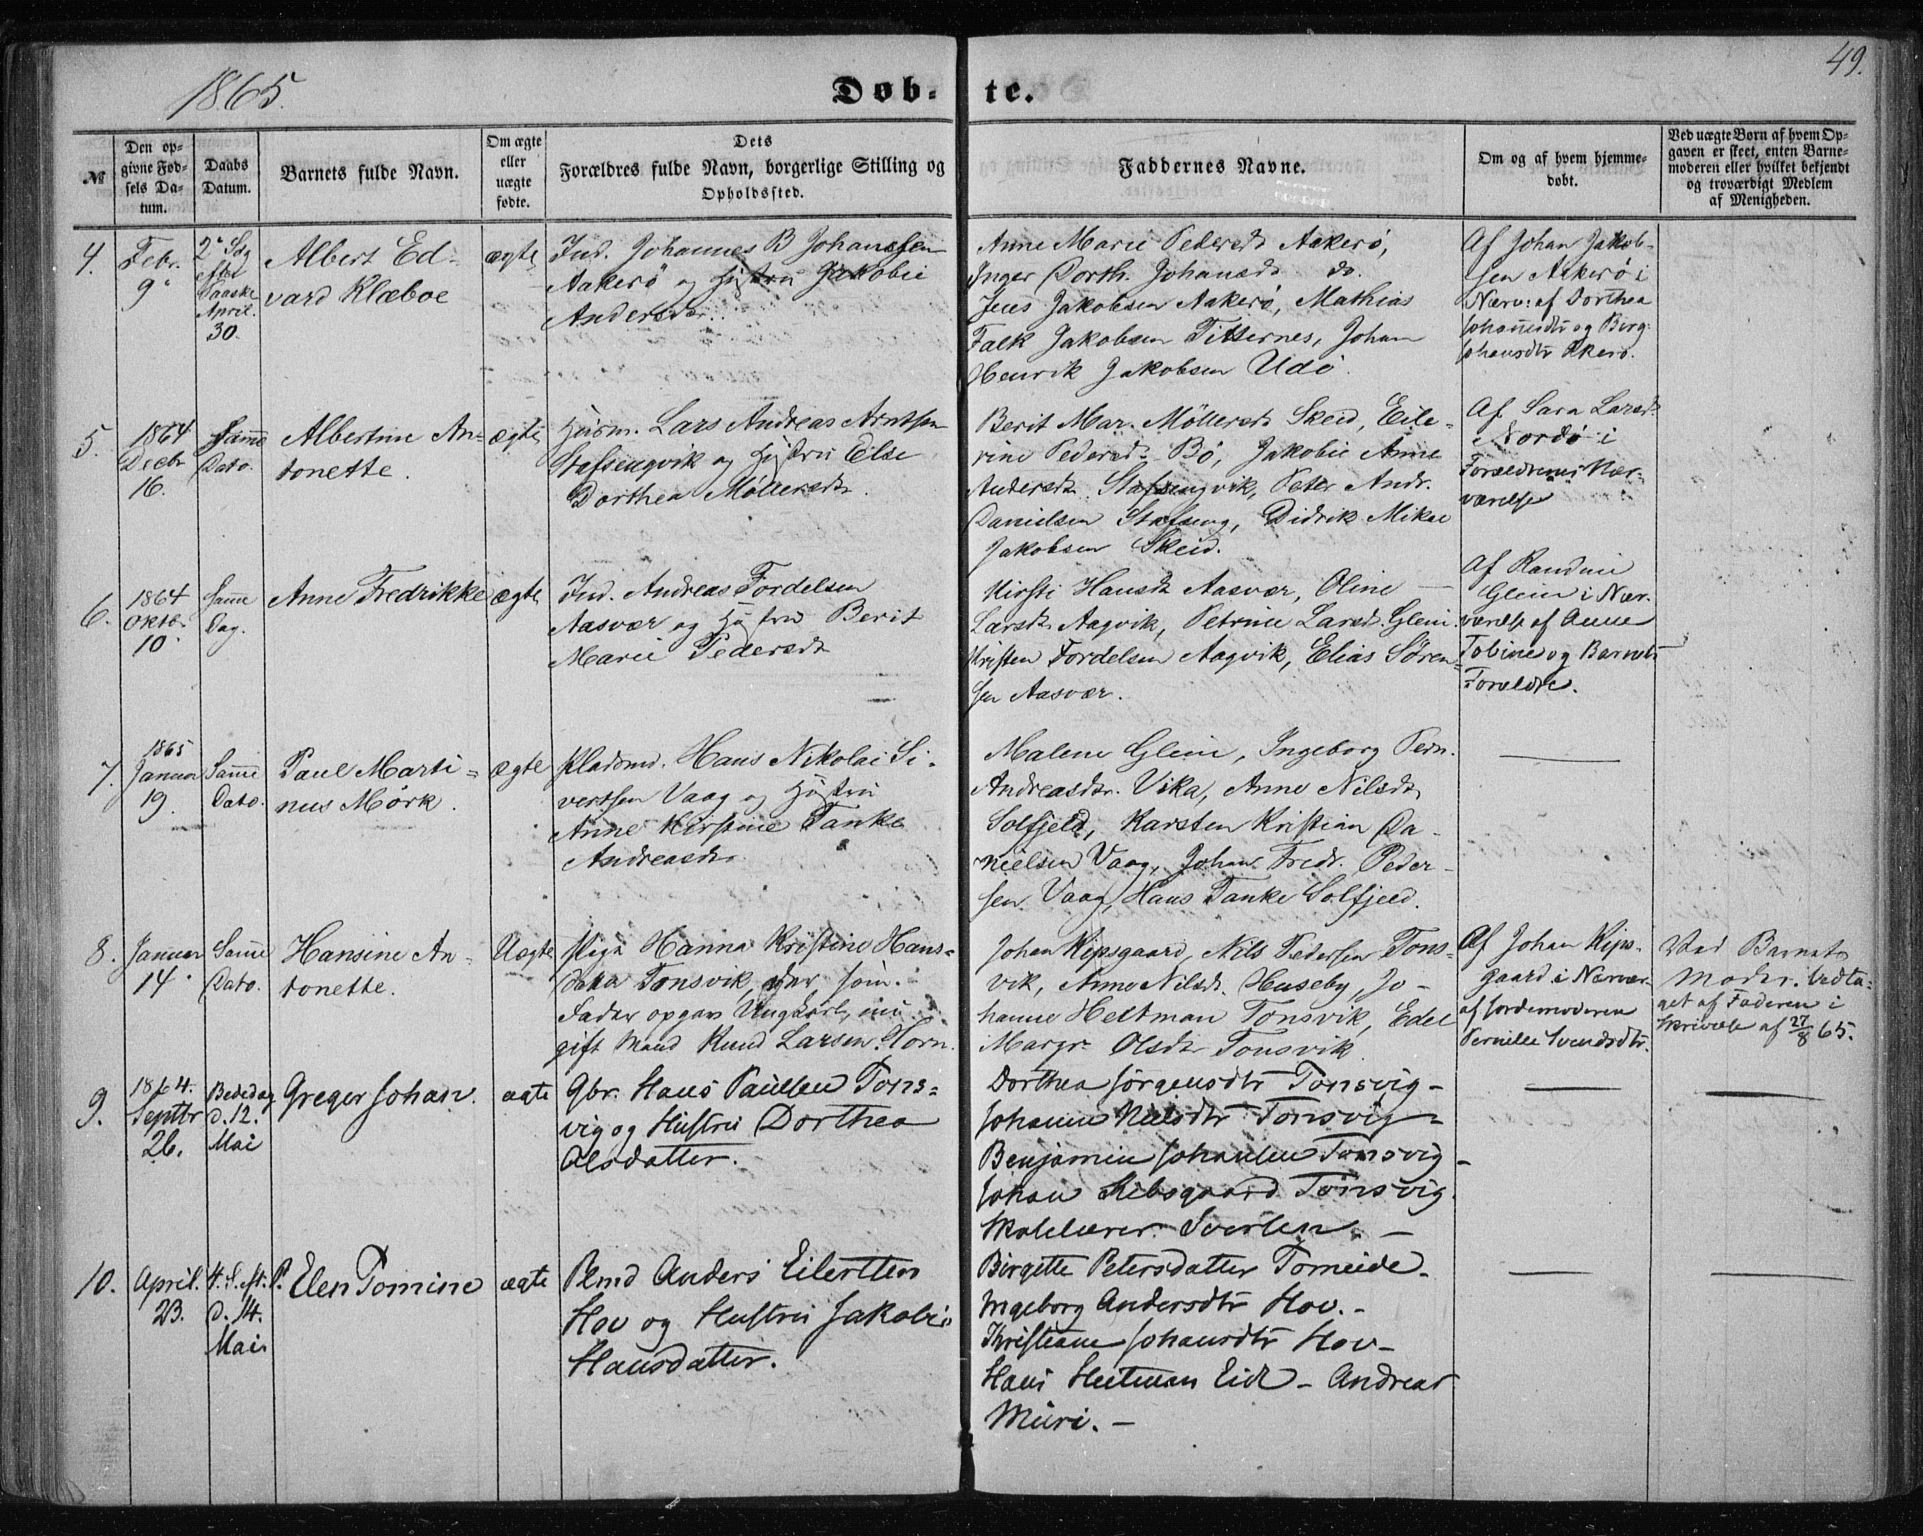 1865.
Døb-
te.
49.
№
Den op-
givne Fød-
sels Da-
tum.
Daabs
Datum.
Barnets fulde Navn.
Om ægte
eller
uægte
fødte.
Dets
Forældres fulde Navn, borgerlige Stilling og
Opholdssted.
Faddernes Navne.
Om og af hvem hjemme-
døbt.
Ved uægte Børn af hvem Op-
gaven er skeet, enten Barne-
moderen eller hvilket bekjendt
og troværdigt Medlem
af Menigheden.
4.
Febr.
9
2. Sdg
eftr
Paaske
April.
30.
Albert Ed-
vard Klæboe
ægte
Ind. Johannes B Johanssen
Aakerø og Hustru Jakobie
Andersdr.
Anne Marie Pedersdt Aakerø,
Inger Dorth. Johansdt do.
Jens Jakobsen Aakerø, Mathias
Falk Jakobsen Titternes, Johan
Henrik Jakobsen Udø.
Af Johan Jakob-
sen Aakerø i
Nærv: af Dorthea
Johansdtr og Berg.
Johansdtr Akerø.
5.
1864
Decbr
16.
Samme
Dato.
Albertine An-
tonette.
ægte
Husm. Lars Andreas Arntsen
Stafsengvik og Hustru Else
Dorthea Møllersdt.
Berit Mar. Møllersdt Skeid, Eile-
rine Pedersdt Bø, Jakobie Anne
Andersdt Stafsengvik, Peter Andr.
Danielsen Stafseng, Didrik Mikal
Jakobsen Skeid.
Af Sara Larsdt
Nordø i
Forældrenes Nær-
værelse
6.
1864
Oktbr.
10
Samme
Dag.
Anne Fredrikke
ægte
Ind. Andreas Fordelsen
Aasvær og Hustru Berit
Marie Pedersdt
Kirsti Hansdt Aasvær, Oline —
Larsdt Aagvik, Petrine Larsdt Glein
Kristen Fordelsen Aagvik, Elias Søren-
sen Aasvær.
Af Randine
Glein i Nær-
værelse af Anne
Tobine og Barnets
Forældre.
7.
1865
Januar
19.
Samme
Dato.
Paul Marti-
nus Mørk.
ægte
Pladsmd. Hans Nikolai Si-
vertsen Vaag og Hustru
Anne Kirstine Tanke
Andreasdt.
Malene Glein, Ingeborg Pern.
Andreasdtr. Vika, Anne Nilsdt
Solfjeld, Karsten Kristian Da-
nielsen Vaag, Johan Fredr. Peder-
sen Vaag, Hans Tanke Solfjeld.
8.
Januar
14
Samme
Dato.
Hansine An-
tonette.
Uægte
Pige Hanna Kristine Hans-
datter Tonsvik, der som
Fader opgav Ungkarl, nu
gift Mand Knud Larsen Horn.
Johan Kipsgaard, Nils Pedersen Tons-
vik, Anne Nilsdt. Huseby, Jo-
hanne Heltman Tonsvik, Edel
Margr. Olsdt Tonsvik.
Af Johan Kips-
gaard i Nærvær.
af Jordemoderen
Pernille Svendsdtr.
Ved Barnets
Moder. Vedta-
get af Faderen i
Skrivelse af 27/8 65.
9.
1864.
Septbr
26.
Bededag
d. 12.
Mai
Greger Johan.
ægte
Gbr. Hans Paulsen Tons-
vig og Hustru Dorthea
Olsdatter.
Dorthea Jørgensdtr Tonsvig -
Johanne Nielsdtr Tonsvig -
Benjamin Johansen Tonsvig -
Johan Kibsgaard Tonsvig.
Skolelærer Sverlen —
10.
April.
23.
4. S. eft. P.
d. 14.
Mai
Elen Tomine
ægte
Plmd Anders Eilertsen
Hov og Hustru Jakobie
Hansdatter.
Birgitte Petersdatter Tomeide -
Ingeborg Andersdtr Hov. -
Christiane Johansdtr Hov -
Hans Heitman Eid - Andreas
Muri. -